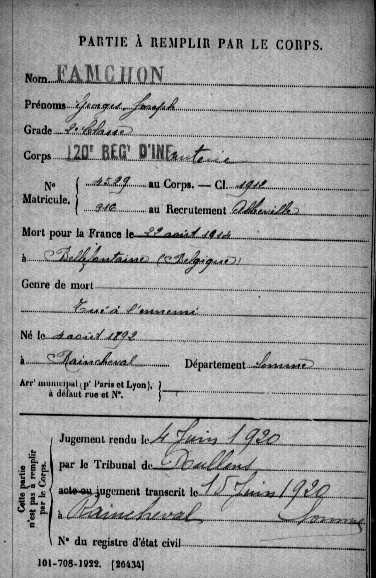 PARTIE À REMPLIR PAR LE CORPS.
Nom FAMCHON
Prénoms Georges Joseph
Grade 2e Classe
Corps 120e RÉGt D'INFanterie
N° Matricule. { 4529 au Corps. — Cl. 1912
910 au Recrutement Abbeville
Mort pour la France le 22 août 1914
à Bellefontaine (Belgique)
Genre de mort
Tué à l'ennemi
Né le 4 août 1892
à Raincheval Département Somme
Arrt municipal (pr Paris et Lyon), à défaut rue et N°.
Cette partie n'est pas à remplir par le Corps.
Jugement rendu le 4 Juin 1920
par le Tribunal de Doullens
acte ou jugement transcrit le 15 Juin 1920
à Raincheval Somme
N° du registre d'état civil
101-708-1922. [26434]